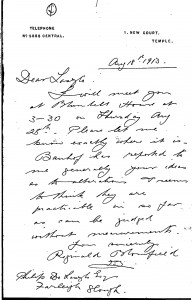 TELEPHONE
Nº 5888 CENTRAL.
1, NEW COURT,
TEMPLE.
Aug 18th 1913.
Dear
I will meet you
at House at
3-30 on Thursday Aug
28th. Please let me
know exactly where it is.
has reported to
me generally your ideas
as to alterations
to think they are
practicable as far
as can be judged
without measurements.
Yours sincerely
Reginald Blomfield
Philip De Esq
Farleigh